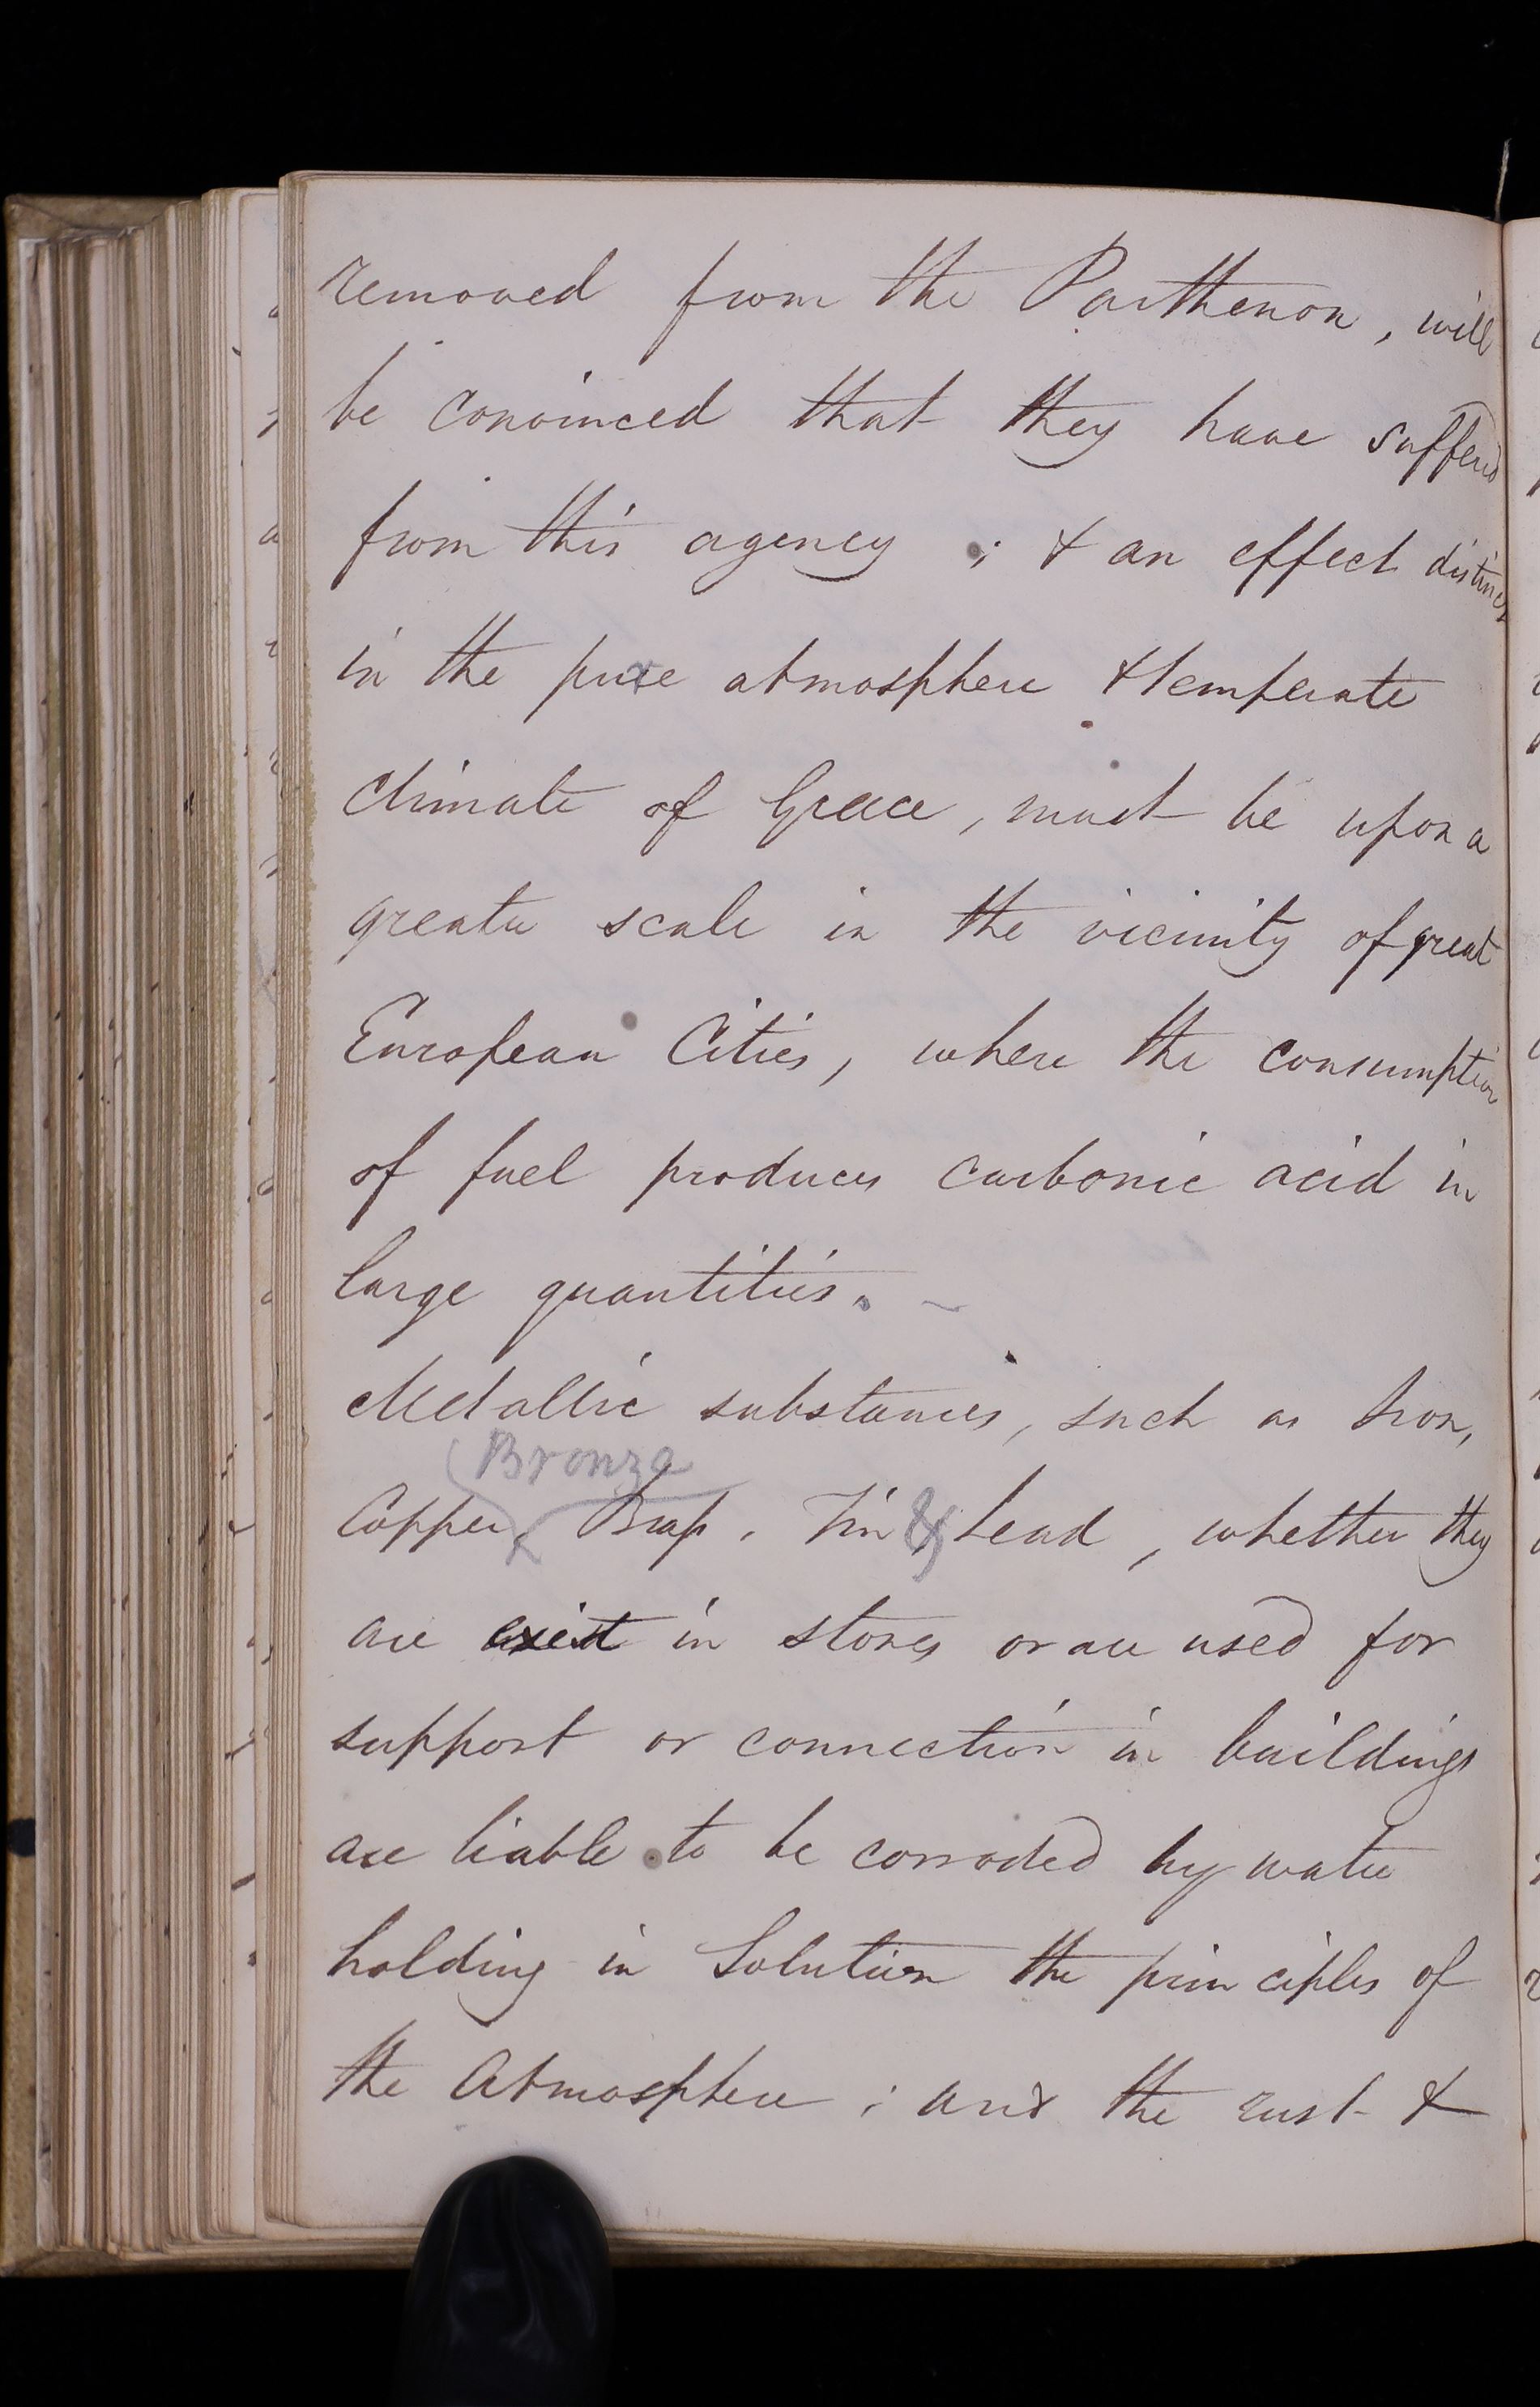 removed from the Parthenon, will
be convinced that they have suffered
from this agency ; & an effect distinct
in the pure atmosphere & temperate
climate of Greece, must be upon a
greater scale in the vicinity of great
European Cities, where the consumption
of fuel produces carbonic acid in
large quantities. ~
Metallic substances, such as Iron,
Bronze
Copper, Brass, Tin & Lead, whether they
are exist in stones or are used for
support or connection in buildings
are liable to be corroded by water
holding in Solution the principles of
the Atmosphere ; and the rust &